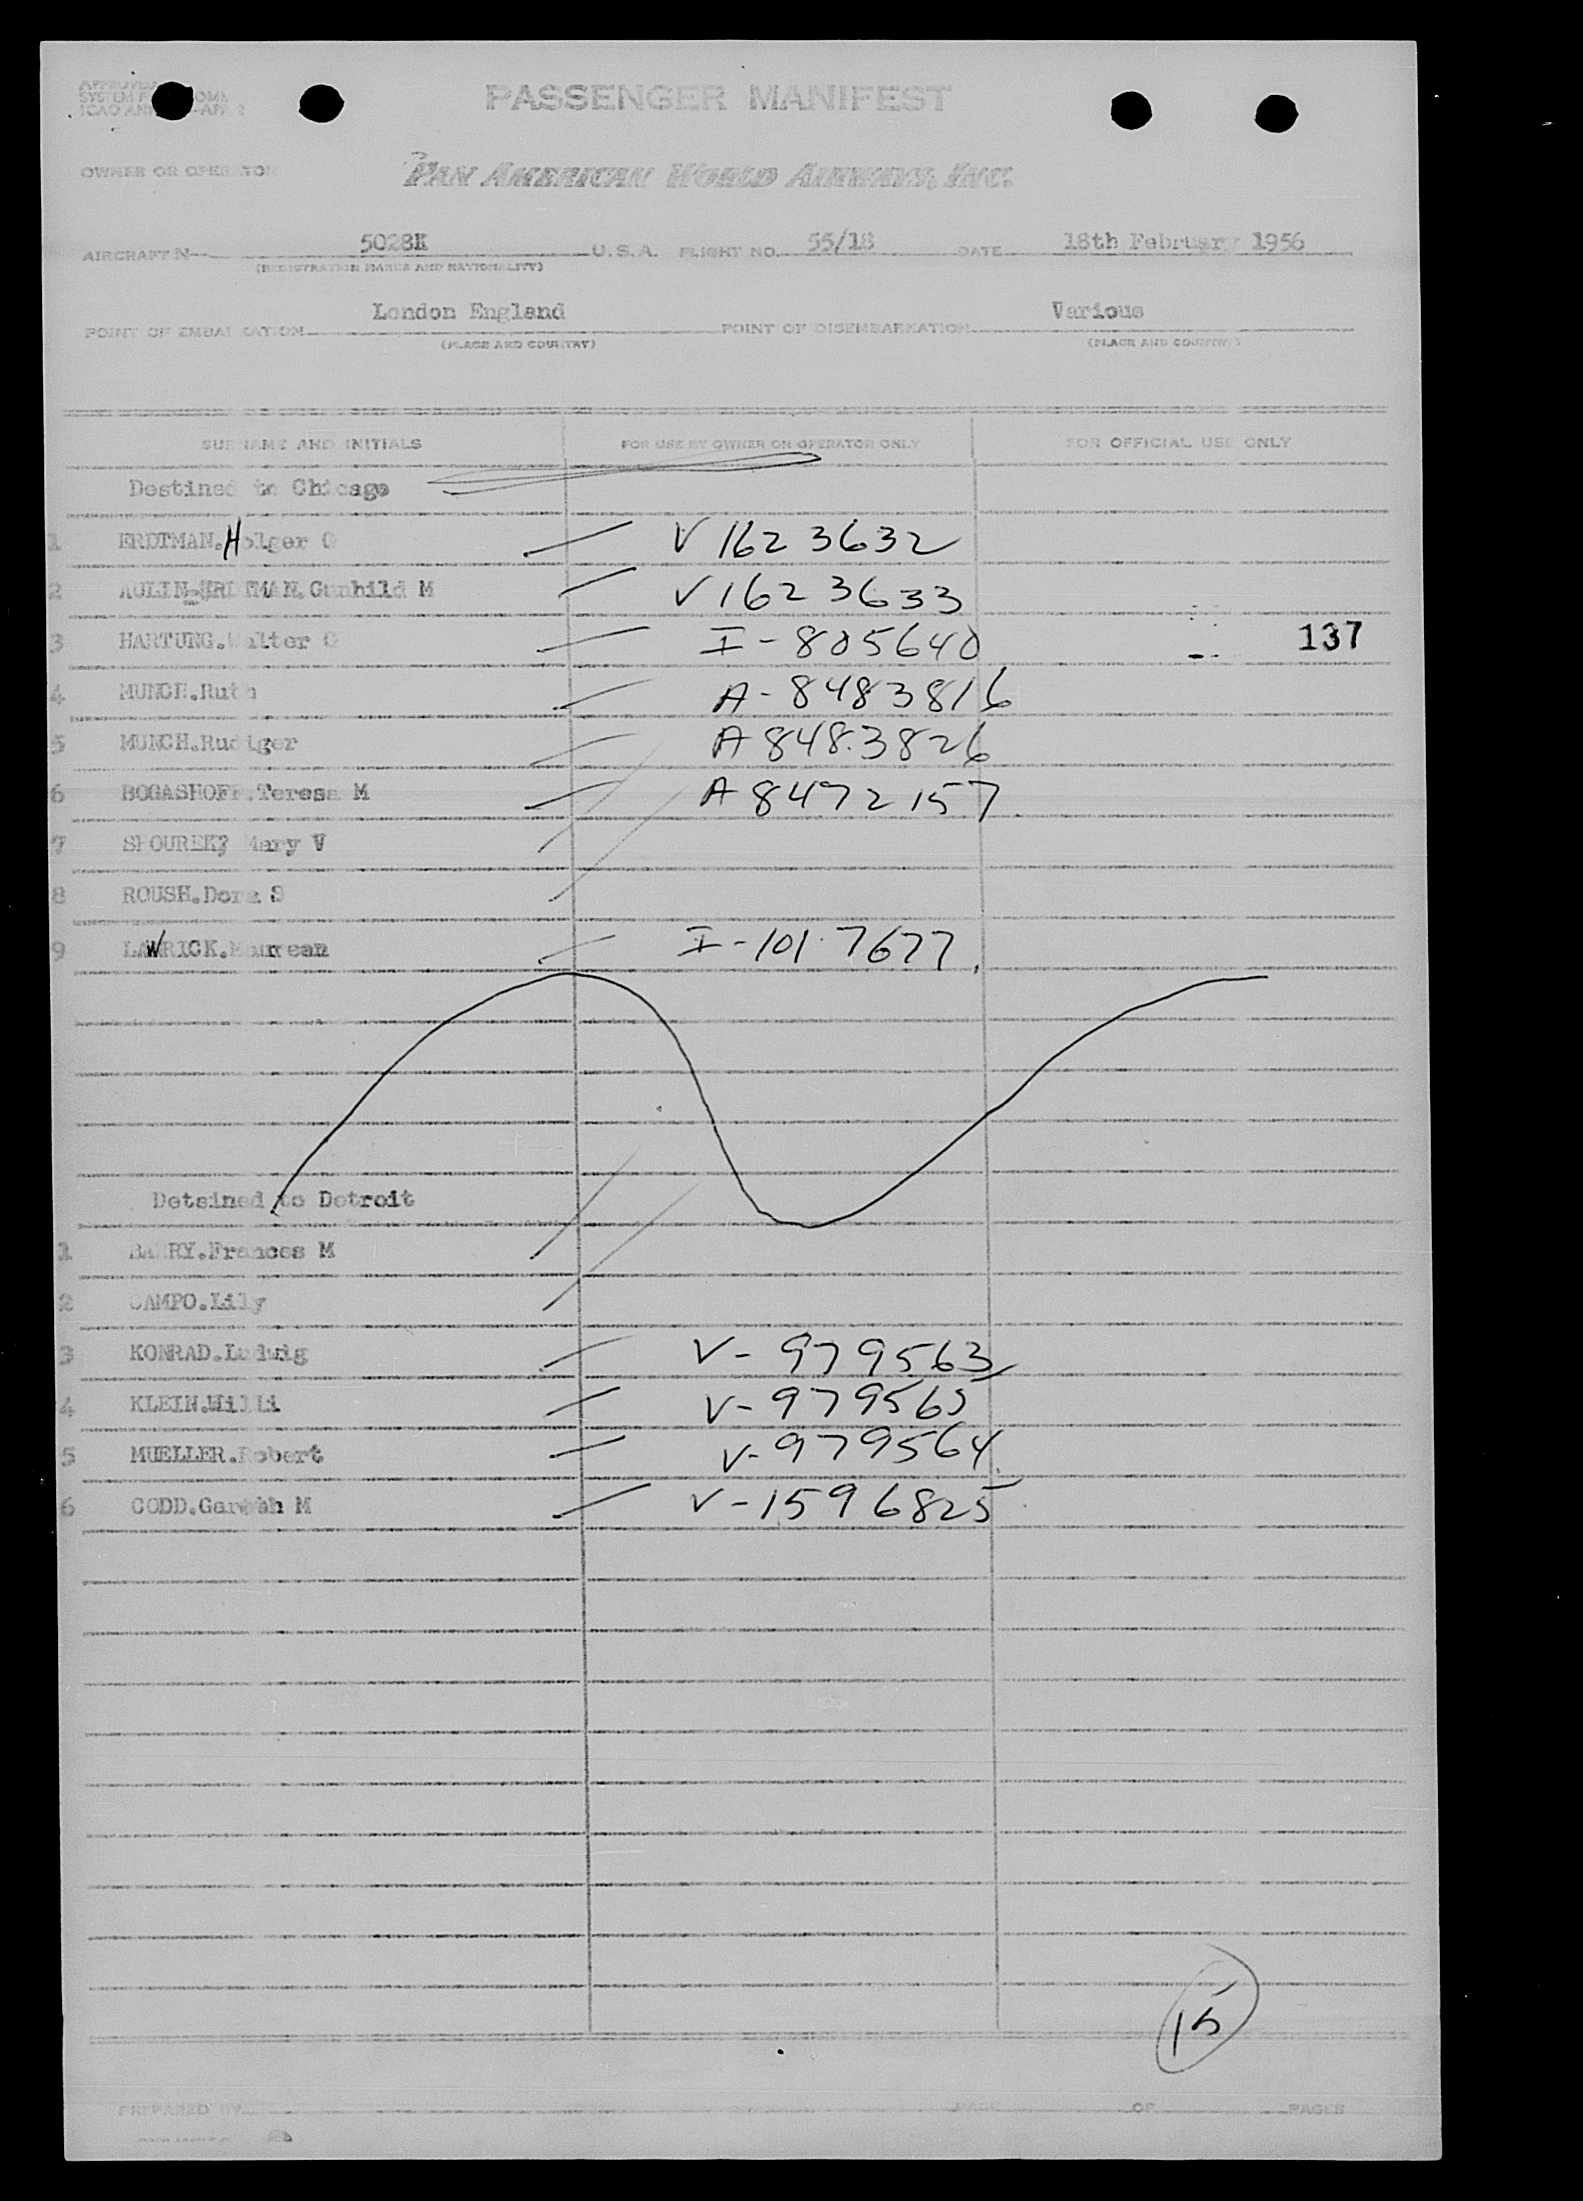 PASSENGER MANIFEST
OWNER OR OPERATOR
PAN AMERICAN WORLD AIRWAYS, INC.
AIRCRAFT N 5028K U.S.A. FLIGHT NO. 55/18 DATE 18th February 1956
(REGISTRATION MARKS AND NATIONALITY)
POINT OF EMBARKATION London England POINT OF DISEMBARKATION Various
(PLACE AND COUNTRY) (PLACE AND COUNTRY)
SURNAME AND INITIALS FOR USE BY OWNER OR OPERATOR ONLY FOR OFFICIAL USE ONLY
Destined to Chicago
1 ERDTMAN.Holger O V 1623632
2 AULIN-ERDTMAN.Gunhild M V 1623633
3 HARTUNG.Walter O I-805640 137
4 MUNCH.Ruth A-8483816
5 MUNCH.Rudiger A8483826
6 BOGASHOFF.Teresa M A8472157
7 Mary V
8 ROUSH.Dora S
9 LAWRICK.Maurean I-1017677
Detained to Detroit
1 BARRY.Frances M
2 CAMPO.Lily
3 KONRAD.Ludwig V-979563
4 KLEIN.Willi V-979565
5 MUELLER.Robert V-979564
6 CODD.Gareth M V-1596825
15
PREPARED BY PAGE OF PAGES